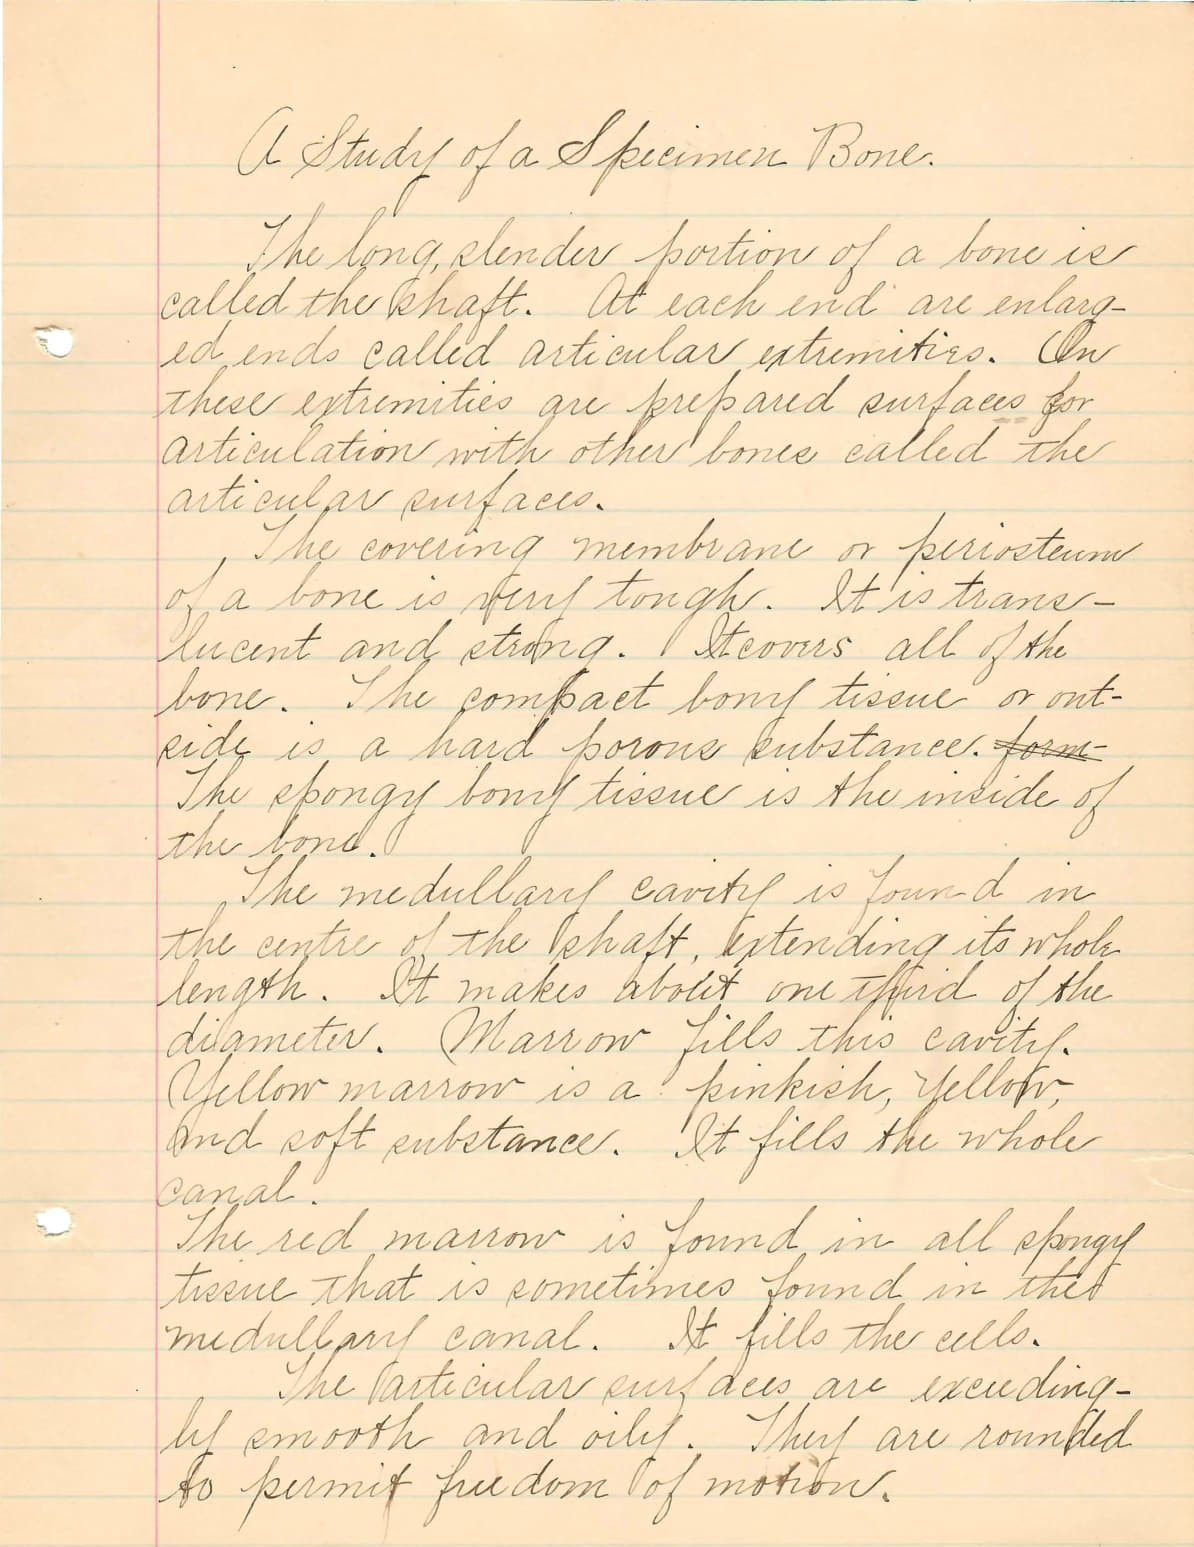 A Study of a Specimen Bone.
The long, slender portion of a bone is
called the shaft. At each end are enlarg-
ed ends called articular extremities. On
these extremities are prepared surfaces for
articulation with other bones called the
articular surfaces.
The covering membrane or periosteum
of a bone is very tough. It is trans-
lucent and strong. It covers all of the
bone. The compact bony tissue or out-
side is a hard porous substance. form
The spongy bony tissue is the inside of
the bone.
The medullary cavity is found in
the centre of the shaft, extending its whole
length. It makes about one third of the
diameter. Marrow fills this cavity.
Yellow marrow is a pinkish, yellow,
and soft substance. It fills the whole
canal.
The red marrow is found in all spongy
tissue that is sometimes found in the
medullary canal. It fills the cells.
The articular surfaces are exceeding-
ly smooth and oily. They are rounded
to permit freedom of motion.